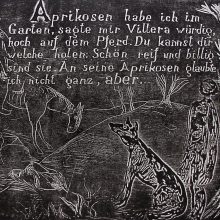 Aprikosen habe ich im
Garten, sagte mir Villera würdig,
hoch auf dem Pferd. Du kannst dir
welche holen. Schön reif und billig
sind sie. An seine Aprikosen glaube
ich nicht ganz, aber.